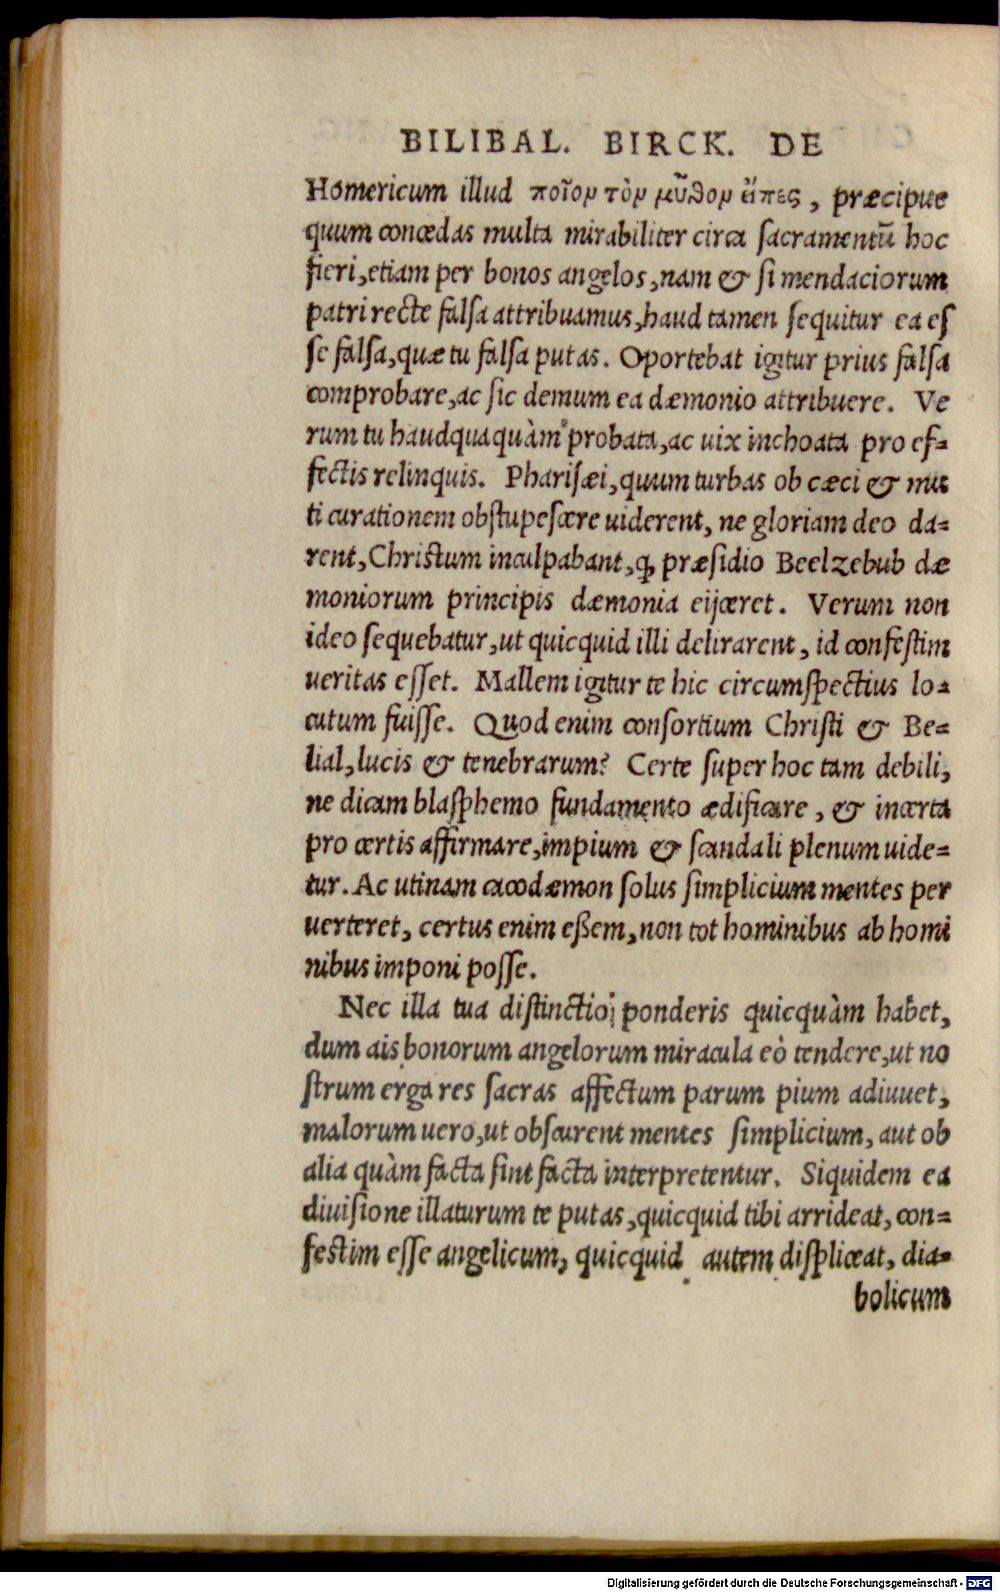 BILIBAL. BIRCK. DE
Homericum illud ποῖον τὸν μῦθον ἔιπες, præcipue
quum concedas multa mirabiliter circa ſacramentũ hoc
fieri, etiam per bonos angelos, nam & ſi mendaciorum
patri recte falſa attribuamus, haud tamen ſequitur ea eſ
ſe falſa, quæ tu falſa putas. Oportebat igitur prius falſa
comprobare, ac ſic demum ea dæmonio attribuere. Ve
rum tu haudquaquàm probata, ac uix inchoata pro ef-
fectis relinquis. Phariſæi, quum turbas ob cæci & mu
ti curationem obſtupeſcere uiderent, ne gloriam deo da-
rent, Chriſtum inculpabant, ꝙ præſidio Beelzebub dæ
moniorum principis dæmonia eijceret. Verum non
ideo ſequebatur, ut quicquid illi delirarent, id confeſtim
ueritas eſſet. Mallem igitur te hic circumſpectius lo-
cutum fuiſſe. Quod enim conſortium Chriſti & Be-
lial, lucis & tenebrarum? Certe ſuper hoc tam debili,
ne dicam blaſphemo fundamento ædificare, & incerta
pro certis affirmare, impium & ſcandali plenum uide-
tur. Ac utinam cacodæmon ſolus ſimplicium mentes per
uerteret, certus enim eßem, non tot hominibus ab homi
nibus imponi poſſe.
Nec illa tua diſtinctio ponderis quicquàm habet,
dum ais bonorum angelorum miracula eò tendere, ut no
ſtrum erga res ſacras affectum parum pium adiuuet,
malorum uero, ut obſcurent mentes ſimplicium, aut ob
alia quàm facta ſint facta interpretentur. Siquidem ea
diuiſione illaturum te putas, quicquid tibi arrideat, con-
feſtim eſſe angelicum, quicquid autem diſpliceat, dia-
bolicum
Digitalisierung gefördert durch die Deutsche Forschungsgemeinschaft - DFG